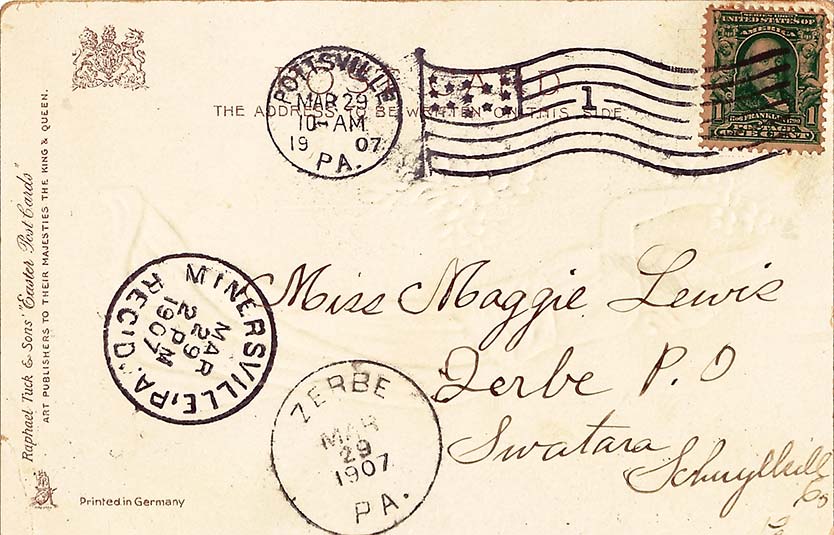 Raphael Tuck & Sons' "Easter Post Cards"
ART PUBLISHERS TO THEIR MAJESTIES THE KING & QUEEN.
Printed in Germany
POST CARD
THE ADDRESS TO BE WRITTEN ON THIS SIDE
POTTSVILLE
MAR 29
10-AM
19 07
PA.
1
SERIES 1902
UNITED STATES OF
AMERICA
FRANKLIN
POSTAGE
1 ONE CENT 1
MINERSVILLE, PA.
MAR
29
2 PM
1907
REC'D.
ZERBE
MAR
29
1907
PA.
Miss Maggie Lewis
Zerbe P.O
Swatara
Schuylkill
Co